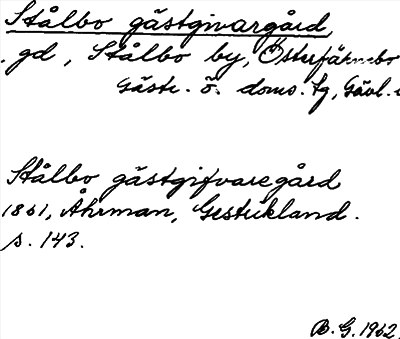 Stålbo gästgivargård
. gd, Stålbo by, Österfärnebo
Gästr. ö. doms. tg, Gävl.
Stålbo gästgifvaregård
1861, Åhrman, Gestrikland.
s. 143.
B. G. 1962.